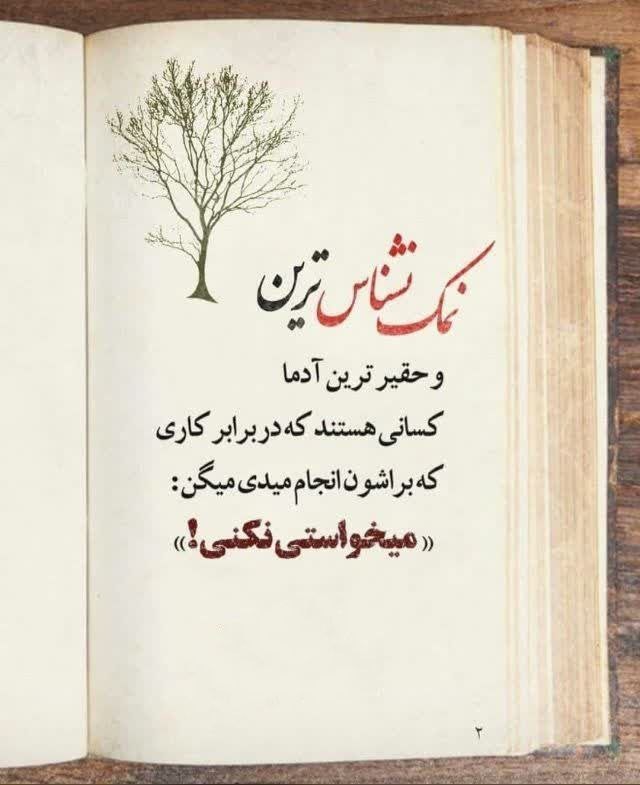 نمک نشناس ترین
و حقیر ترین آدما
کسانی هستند که در برابر کاری
که براشون انجام میدی میگن:
«میخواستی نکنی!»
۲